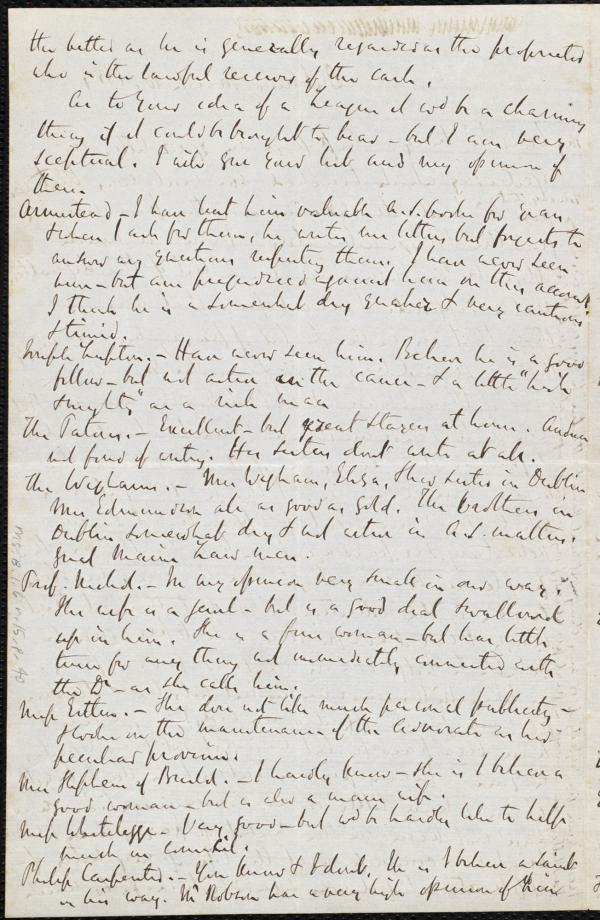 the better as he is generally regarded as the proprietor
who is the lawful receiver of the cash.
As to your idea of a League it wd be a charming
thing if it could be brought to bear - but I am very
sceptical. I will give your list and my opinion of
them.
Armistead - I have lent him valuable A.S. books for years
& when I ask for them, he writes me letters but forgets to
answer my questions respecting them. I have never seen
him - but am prejudiced against him on this account
I think he is a somewhat dry Quaker & very cautious
& timid.
Joseph Lupton. - Have never seen him. Believe he is a good
fellow - but not active in the cause - & a little "high
& mighty" as a rich man
The Patons. - Excellent - but great stayers at home. Andrew
not fond of writing. His sisters dont write at all.
The Wighams. - Mrs Wigham, Eliza, & her sister in Dublin
Mrs Edmundson all as good as gold. The brothers in
Dublin somewhat dry & not active in A.S. matters.
Good Maine Law men.
Prof. Nichol. - In my opinion very small in our way.
His wife is a jewel - but is a good deal swallowed
up in him. She is a fine woman - but has little
time for any thing not immediately connected with
the Dr - as she calls him.
Miss Estlin. - She does not like much personal publicity -
& looks on the maintenance of the Advocate as her
peculiar province.
Mrs Stephens of - I hardly know - she is I believe a
good woman - but is also a wife.
Miss Whitelegge - Very good - but wd be hardly like to help
much in council.
Philip Carpenter - You know & I dont. He is I believe a Saint
in his way. Mr Robson has a very high opinion of him
Ms. B.1.6 v.15, p. 40